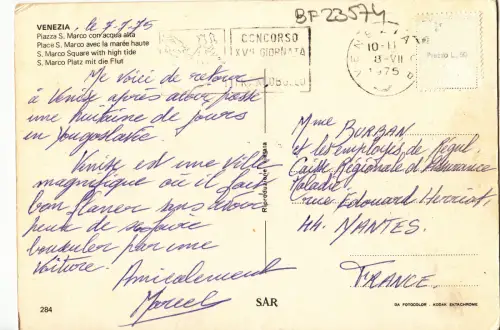 BP23574
VENEZIA, le 7.7.75
Piazza S. Marco con acqua alta
Place S. Marco avec la marée haute
S. Marco Square with high tide
S. Marco Platz mit die Flut
CONCORSO
XVII GIORNATA
FRANCOBOLLO
10-11
8-VII
1975
Prezzo L. 60
Me voici de retour
à Venise après avoir passé
une huitaine de jours
en Yougoslavie.
Venise est une ville
magnifique où il fait
bon flaner sans avoir
peur de se faire
bousculer par une
voiture.
Amicalement
Marcel
Mme BURBAN
et les employés de
Caisse Régionale d'Assurance
Maladie
rue Édouard Herriot,
44. NANTES.
FRANCE.
Riproduzione vietata
284
SAR
GA FOTOCOLOR - KODAK EKTACHROME